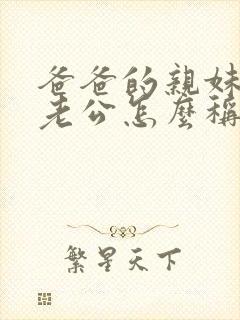 爸爸的親妹
老公怎麼稱
繁星天下